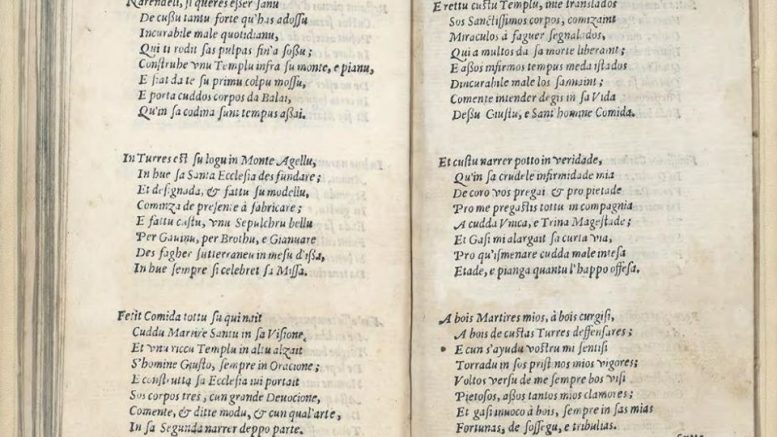 Narendeli, si queres esser sanu
De custu tantu forte qu'has adossu
Incurabile male quotidianu,
Qui ti rodit sas pulpas fin'a sossu;
Construhe vnu Templu infra su monte, e pianu,
E siat da te su primu colpu mossu,
E porta cuddos corpos da Balai,
Qu'in sa codina sunt tempus assai.
In Turres est su logu in Monte Agellu,
In hue sa Santa Ecclesia des fundare;
Et designada, & fattu su modellu,
Cominza de presente à fabricare;
E fattu castu, vnu Sepulchru bellu
Per Gauinu, per Brothu, e Gianuare
Des fagher sutierraneu in mesu d'issa,
In hue sempre si celebret sa Missa.
Fetit Comida tottu sa qui nait
Cuddu Martire Santu in sa Visione,
Et vnu riccu Templu in altu alzait
S'homine Giusto, sempre in Oracione;
E construtta sa Ecclesia iui portait
Sos corpos tres, cun grande Deuocione,
Comente, & ditte modu, & cun qual'arte,
In sa Segunda narrer deppo parte.
E rettu custu Templu, inie translados
Sos Sanctissimos corpos, comizaint
Miraculos à faguer segnalados,
Qui a multos da sa morte liberaint;
E assos infirmos tempus meda istados
D'incurabile male los sanaint;
Comente intender degis in sa Vida
Dessu Giustu, e Sant'homine Comida.
Et custu narrer potto in veridade,
Qu'in sa crudele infirmidade mia
De coro vos pregai & pro pietade
Pro me pregastis tottu in compagnia
A cudda Vnica, e Trina Magestade;
Et Gasi mi alargait sa curta via,
Pro qu'ismenare cudda male intesa
Etade, e pianga quantu l'happo offesa.
A bois Martires mios, à bois curgisi,
A bois de custas Turres deffensares;
E cun s'ayudu vostru mi sentisi
Torradu in sos pristinos mios vigores;
Voltos versu de me sempre bos visi
Pietosos, assos tantos mios clamores;
Et gasi inuoco à bois, sempre in sas mias
Fortunas, de sossegu, e tribulias.